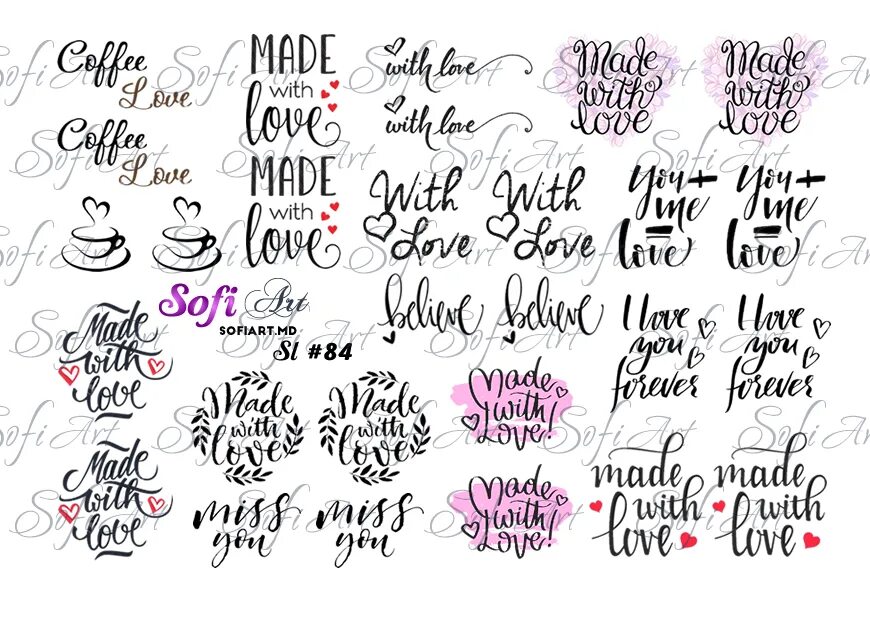 Coffee
Love
Coffee
Love
MADE
with
love
MADE
with
love
with love
with love
Made
with
love
Made
with
love
With
Love
With
Love
You +
me
=
love
You +
me
=
love
Sofi Art
SOFIART.MD
Sl #84
believe
believe
I love
you
forever
I love
you
forever
Made
with
love
Made
with
love
Made
with
love
Made
with
love
miss
you
miss
you
Made
with
Love!
Made
with
Love!
made
with
love
made
with
love
Sofi Art